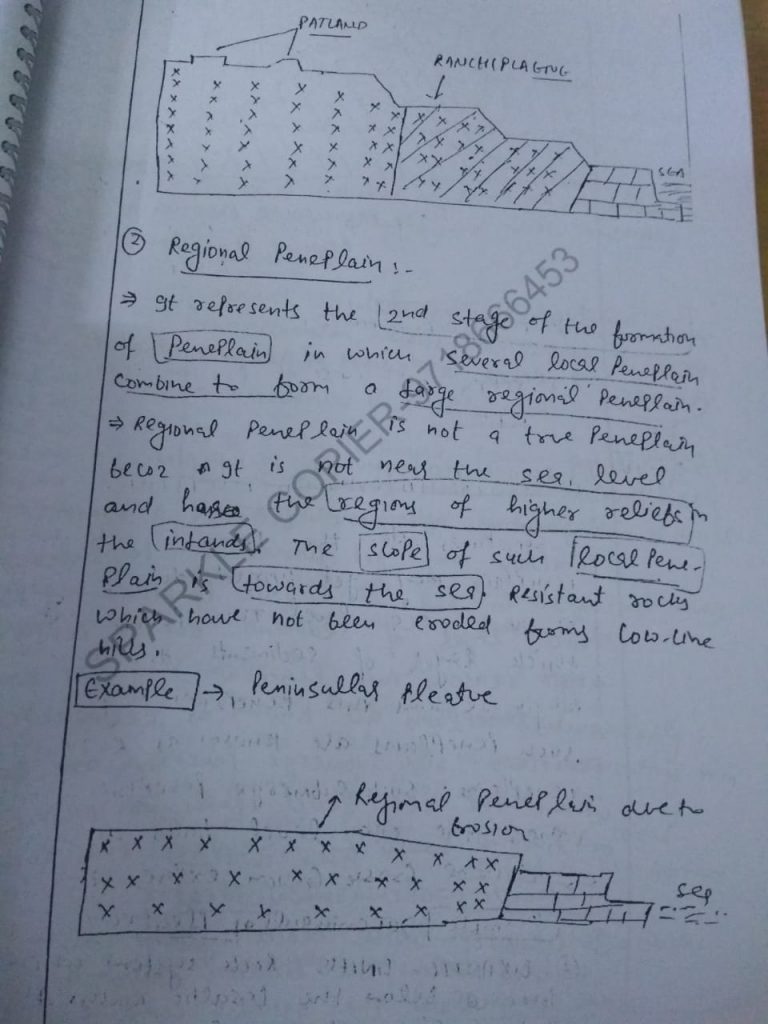 PATLAND
RANCHI PLAETUE
SEA
② Regional PenePlain :-
⇒ It represents the 2nd stage of the formation
of PenePlain in which several local PenePlain
combine to form a large regional PenePlain.
⇒ Regional PenePlain is not a true PenePlain
becoz It is not near the sea level
and has the regions of higher reliefs in
the inlands. The slope of such local Pene-
Plain is towards the sea. Resistant rocks
which have not been eroded forms low-line
hills.
Example → Peninsullar Pleatue
Regional PenePlain due to
Erosion
Sea
SPARKLE COPIER-9718666453